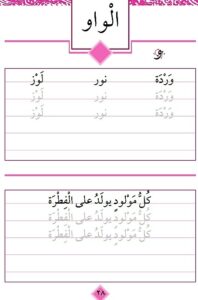 الْواو
و
وَرْدَة نور لَوْز
وَرْدَة نور لَوْز
وَرْدَة نور لَوْز
كُلُّ مَوْلودٍ يولَدُ على الْفِطْرَة
كُلُّ مَوْلودٍ يولَدُ على الْفِطْرَة
كُلُّ مَوْلودٍ يولَدُ على الْفِطْرَة
٤٨